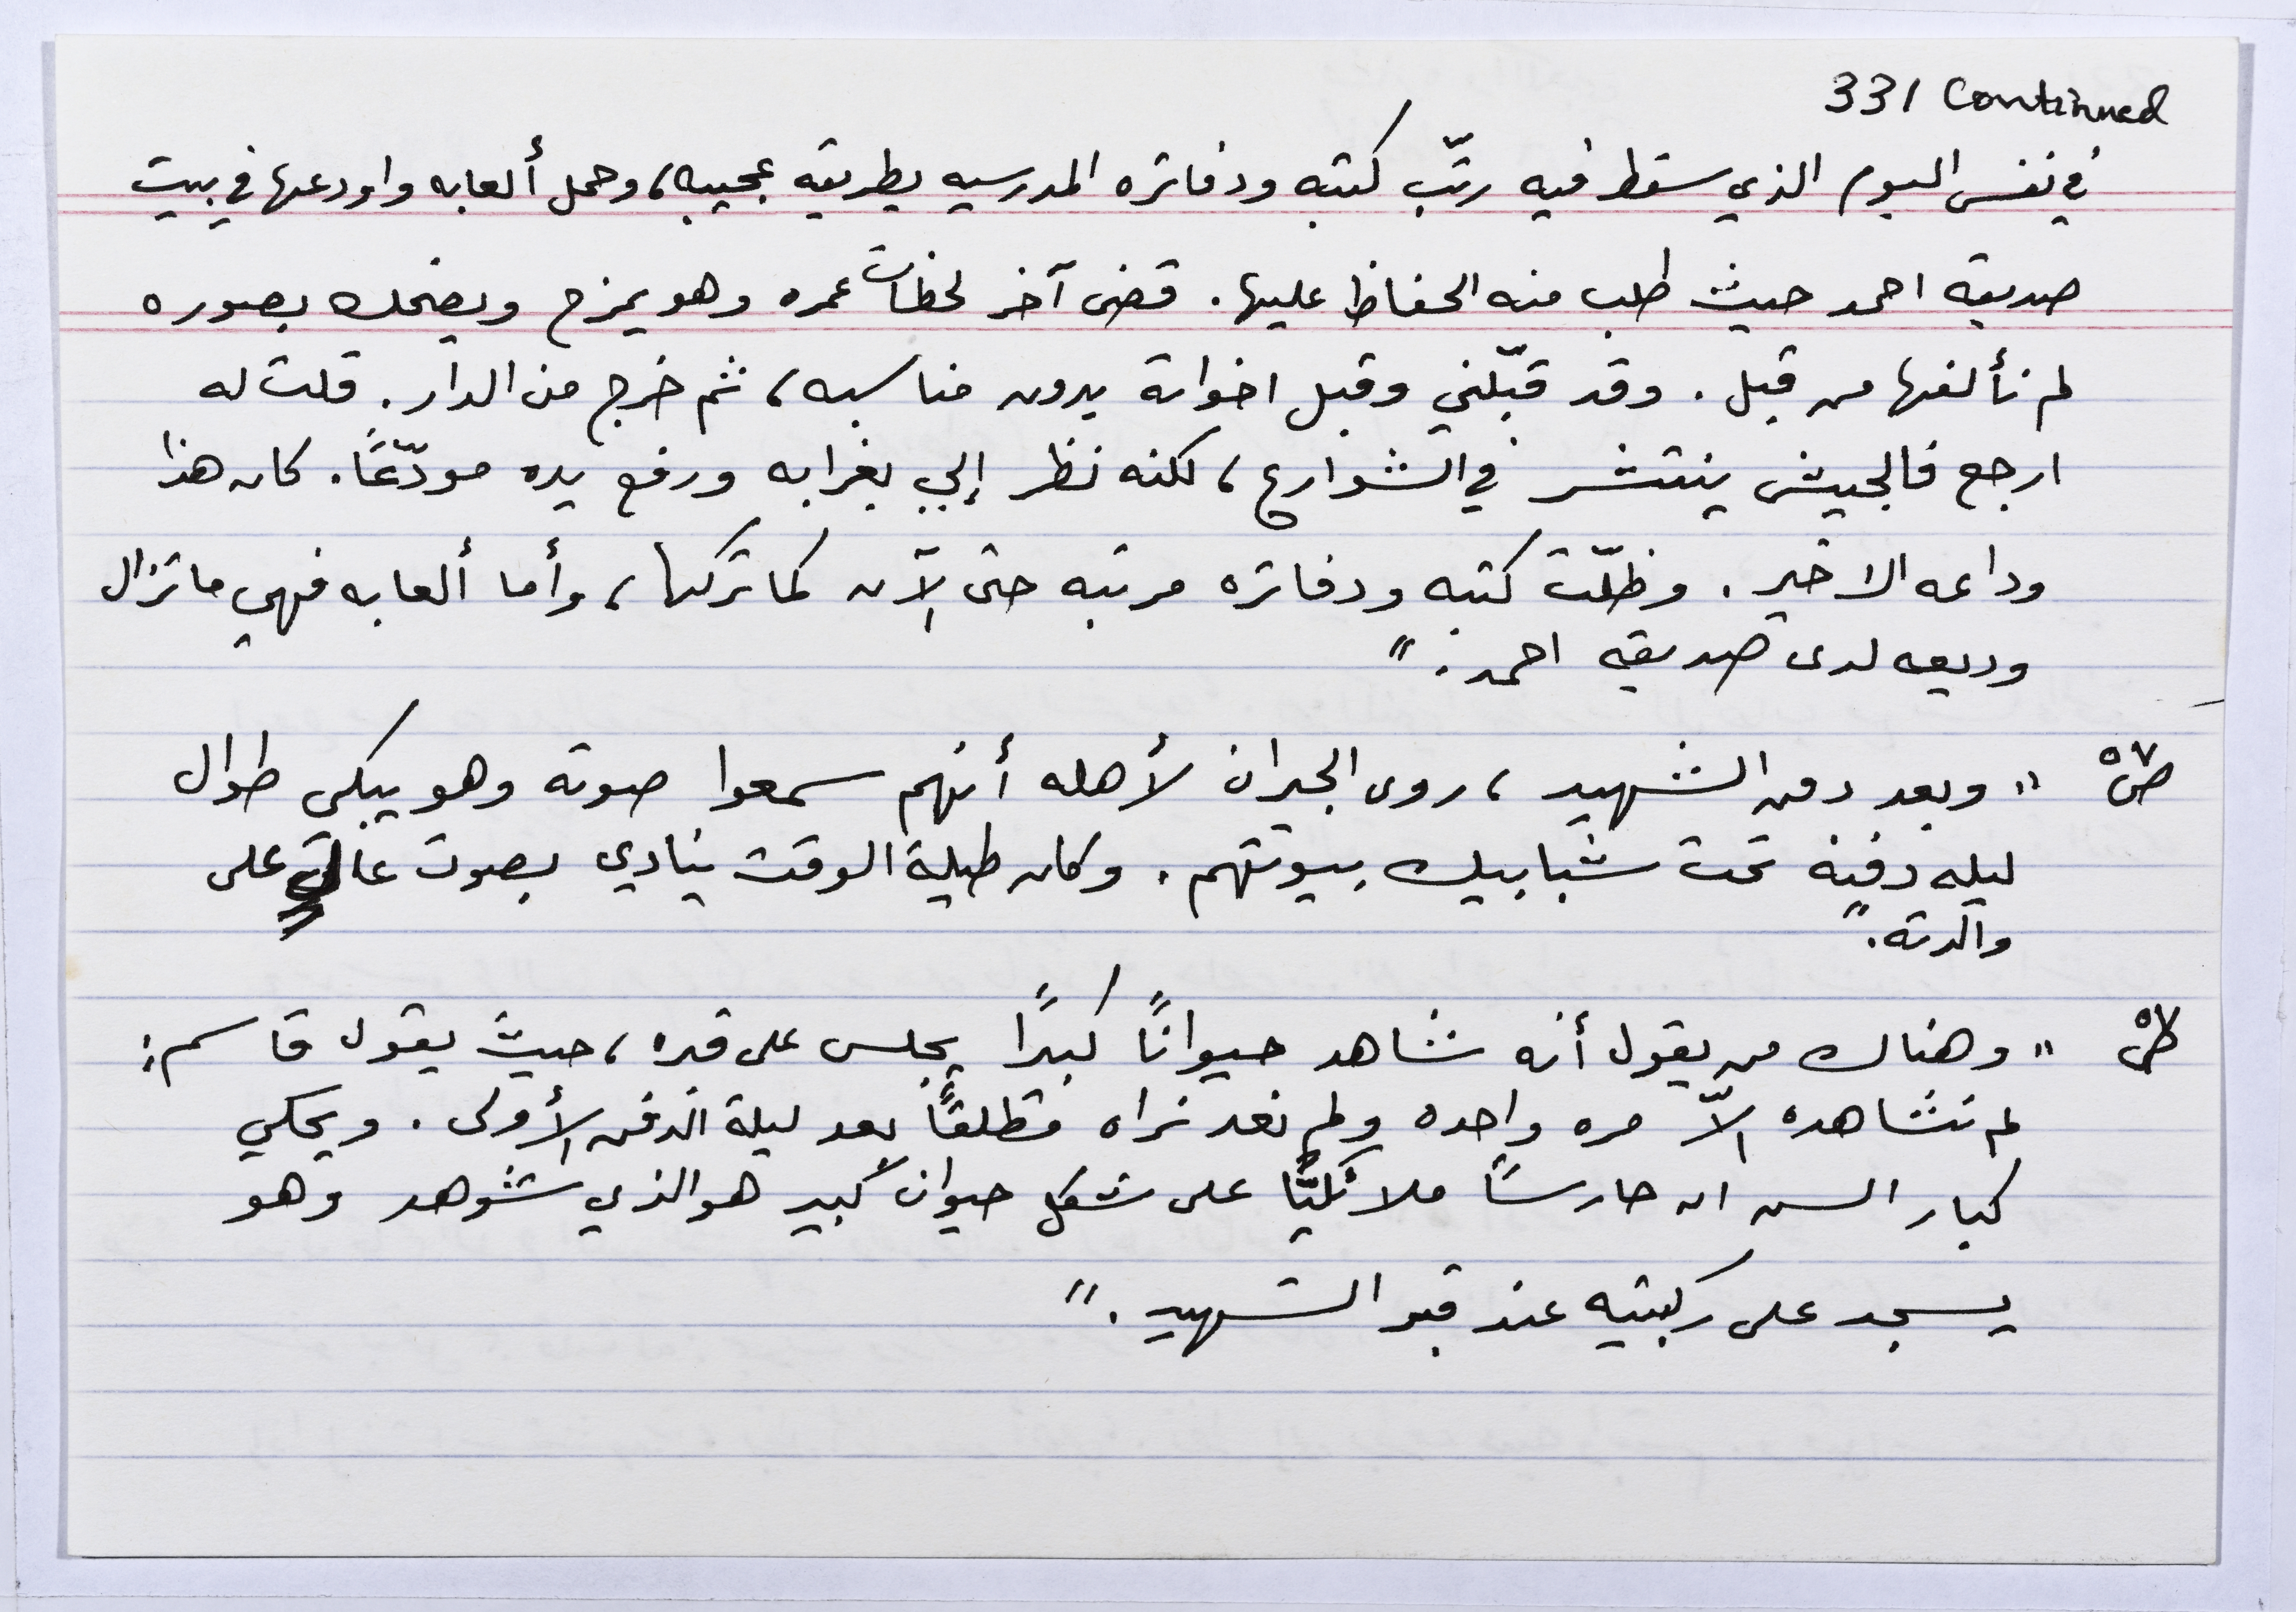 331 Continued
في نفس اليوم الذي سقط فيه رتّب كتبه ودفاتره المدرسيه بطريقه عجيبه، وحمل ألعابه واودعها في بيت
صديقه احمد حيث طلب منه الحفاظ عليها. قضى آخر لحظات عمره وهو يمزح ويضحك بصوره
لم نألفها من قبل. وقد قبّلني وقبل اخوانه بدون مناسبه، ثم خرج من الدار. قلت له
ارجع فالجيش ينتشر في الشوارع، لكنه نظر إلي بغرابه ورفع يده مودّعًا. كان هذا
وداعه الاخير. وظلّت كتبه ودفاتره مرتبه حتى الآن كما تركها، وأما ألعابه فهي ما تزال
وديعه لدى صديقه احمد."
ص٥٧ "وبعد دفن الشهيد، روى الجيران لأهله أنهم سمعوا صوته وهو يبكي طوال
ليله دفنه تحت شبابيك بيوتهم. وكان طيلة الوقت ينادي بصوت عالٍ على
والدته."
ص٥٧ "وهناك من يقول أنه شاهد حيوانًا كبيرًا يجلس على قبره، حيث يقول قاسم:
لم نشاهده إلاّ مره واحده ولم نعد نراه مطلقًا بعد ليلة الدفن الأولى. ويحكي
كبار السن ان حارسًا ملائكيًّا على شكل حيوان كبير هو الذي شوهد وهو
يسجد على ركبتيه عند قبر الشهيد."